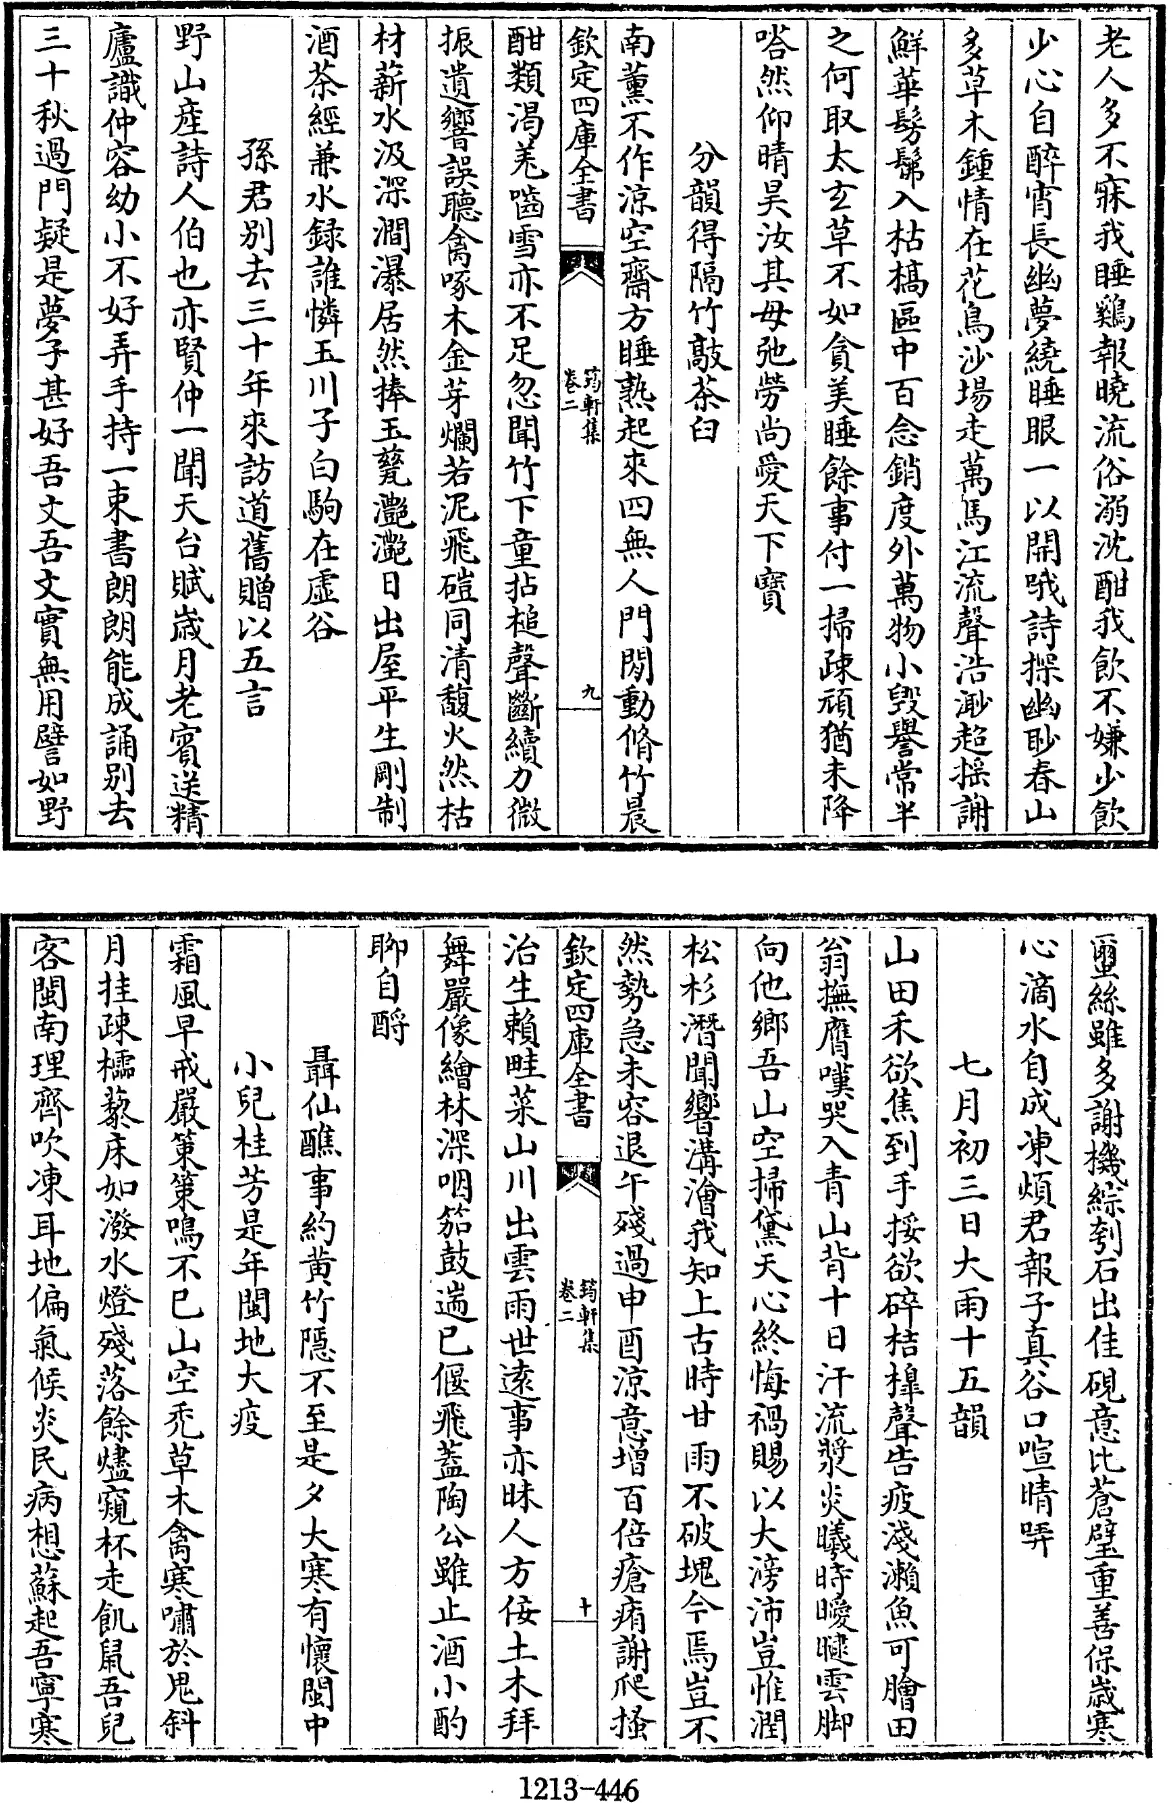 老人多不寐我睡鷄報曉流俗溺沈酣我飲不嫌少飲
少心自醉宵長幽夢繞睡眼一以開哦詩探幽眇春山
多草木鍾情在花鳥沙場走萬馬江流聲浩渺超摇謝
鮮華髣髴入枯槁區中百念銷度外萬物小毁譽常半
之何取太玄草不如貪美睡餘事付一掃疎頑猶未降
嗒然仰晴昊汝其毋弛勞尚愛天下寶
分韻得隔竹敲茶臼
南薰不作凉空齋方睡熟起來四無人門閴動脩竹晨
欽定四庫全書
筠軒集
卷二
九
酣類渇羌嚙雪亦不足忽聞竹下童拈槌聲斷續力微
振遺響誤聽禽啄木金芽爛若泥飛磑同清馥火然枯
材薪水汲深澗瀑居然捧玉甆灔灔日出屋平生剛制
酒茶經兼水録誰憐玉川子白駒在虚谷
孫君别去三十年來訪道舊贈以五言
野山産詩人伯也亦賢仲一聞天台賦嵗月老賓送精
廬識仲容幼小不好弄手持一束書朗朗能成誦别去
三十秋過門疑是夢子甚好吾文吾文實無用譬如野
蠒絲雖多謝機綜刳石出佳硯意比蒼璧重善保嵗寒
心滴水自成凍煩君報子真谷口喧晴哢
七月初三日大雨十五韻
山田禾欲焦到手挼欲碎桔槹聲告疲淺瀬魚可膾田
翁撫膺嘆哭入青山背十日汗流漿炎曦時曖曃雲脚
向他鄉吾山空掃黛天心終悔禍賜以大滂沛豈惟潤
松杉潛聞響溝澮我知上古時甘雨不破塊今焉豈不
然勢急未容退午殘過申酉凉意增百倍瘡痏謝爬搔
欽定四庫全書
筠軒集
卷二
十
治生頼畦菜山川出雲雨世逺事亦昧人方佞土木拜
舞嚴像繪林深咽笳鼓遄已偃飛蓋陶公雖止酒小酌
聊自酹
聶仙醮事約黄竹隠不至是夕大寒有懐閩中
小兒桂芳是年閩地大疫
霜風早戒嚴策策鳴不已山空秃草木禽寒嘯於鬼斜
月挂疎櫺藜床如潑水燈殘落餘燼窺杯走飢鼠吾兒
客閩南理齊吹凍耳地偏氣候炎民病想蘇起吾寧寒
1213-446